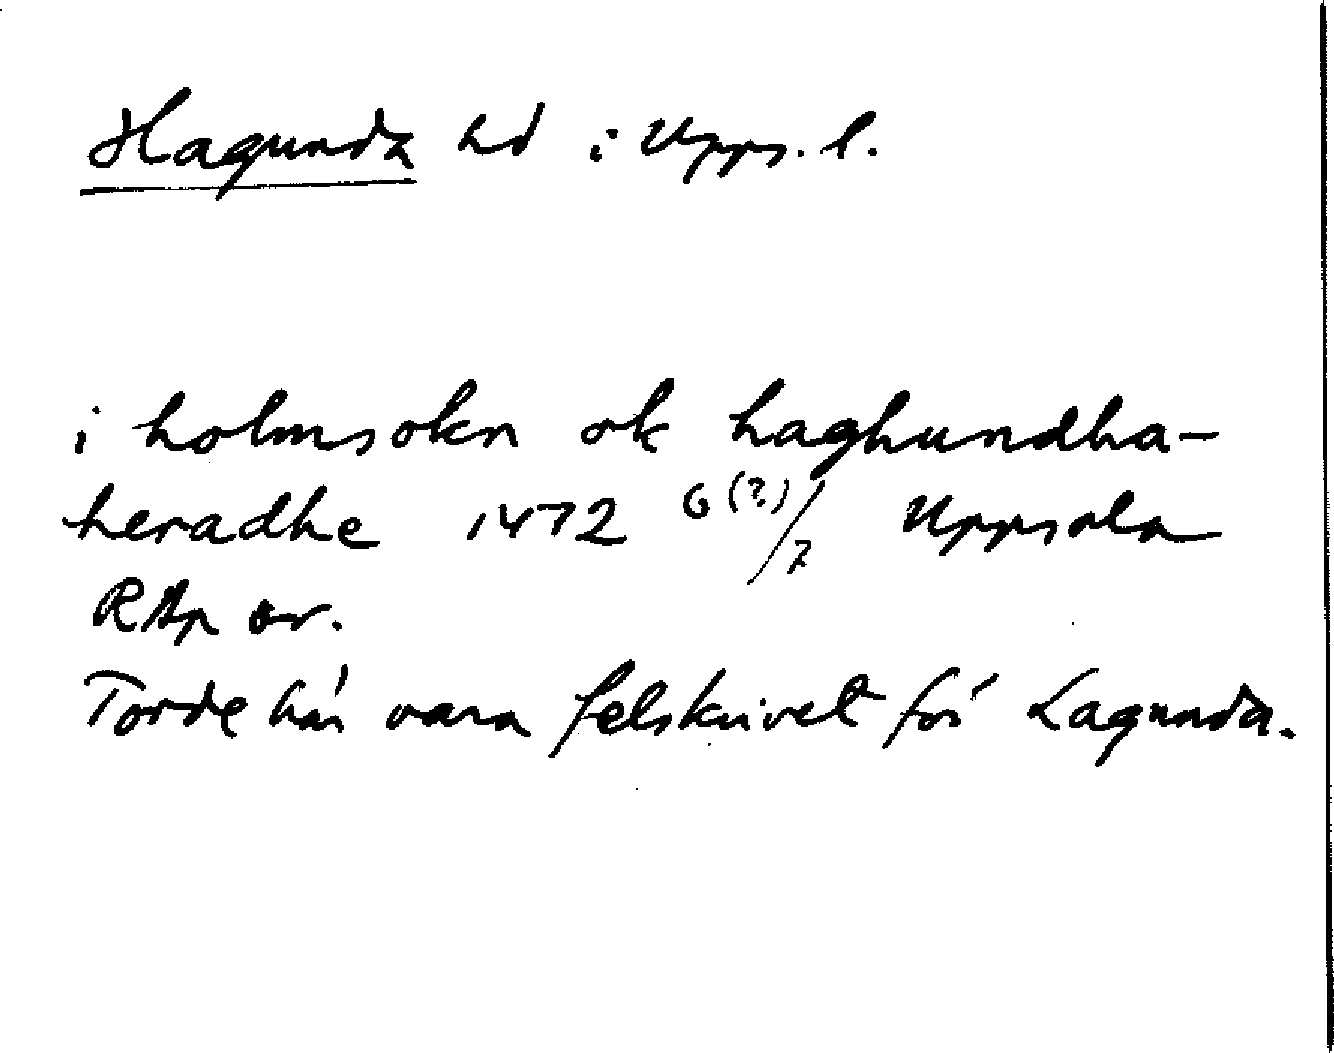 Hagunda hd i Upps. l.
i holmsokn ok haghundha-
heradhe 1472 6(?)/7 Uppsala
RAp or.
Torde här vara felskrivet för Lagunda.